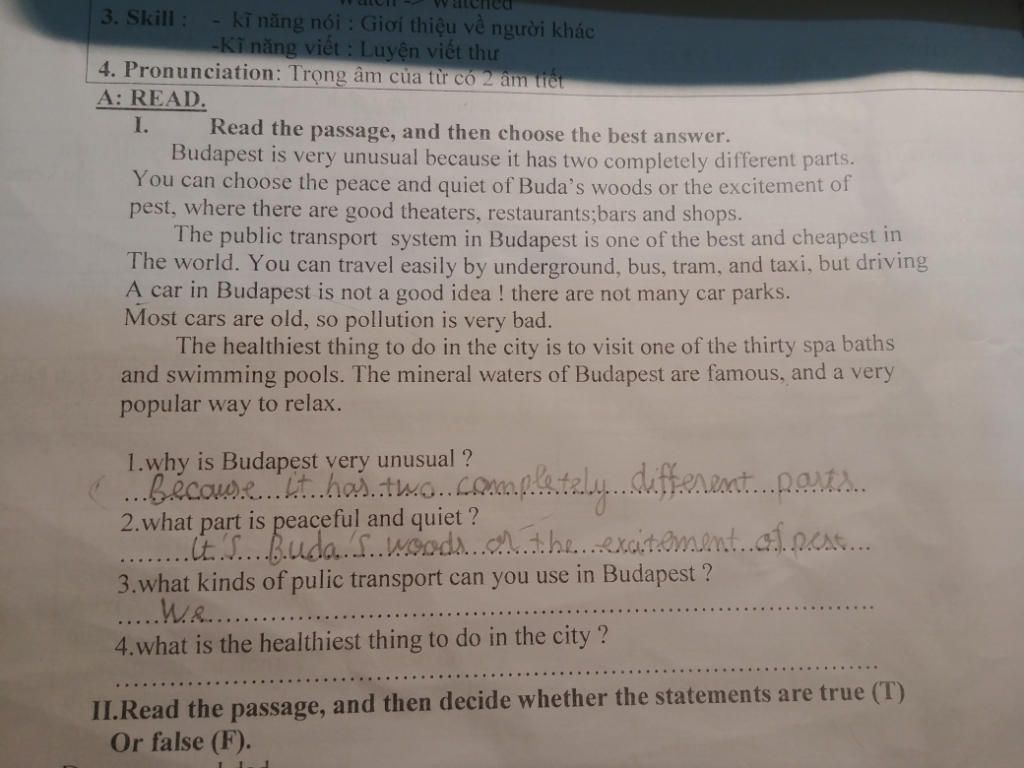 Watch -> Watched
3. Skill : - kĩ năng nói : Giơí thiệu về người khác
-Kĩ năng viết : Luyện viết thư
4. Pronunciation: Trọng âm của từ có 2 âm tiết
A: READ.
I. Read the passage, and then choose the best answer.
Budapest is very unusual because it has two completely different parts.
You can choose the peace and quiet of Buda's woods or the excitement of
pest, where there are good theaters, restaurants;bars and shops.
The public transport system in Budapest is one of the best and cheapest in
The world. You can travel easily by underground, bus, tram, and taxi, but driving
A car in Budapest is not a good idea ! there are not many car parks.
Most cars are old, so pollution is very bad.
The healthiest thing to do in the city is to visit one of the thirty spa baths
and swimming pools. The mineral waters of Budapest are famous, and a very
popular way to relax.
1.why is Budapest very unusual ?
...Because...it..has..two...completely...different...parts..
2.what part is peaceful and quiet ?
.........It's...Buda's..woods..or..the...excitement..of.pest....
3.what kinds of pulic transport can you use in Budapest ?
.....We..............................................................................
4.what is the healthiest thing to do in the city ?
.........................................................................................
II.Read the passage, and then decide whether the statements are true (T)
Or false (F).